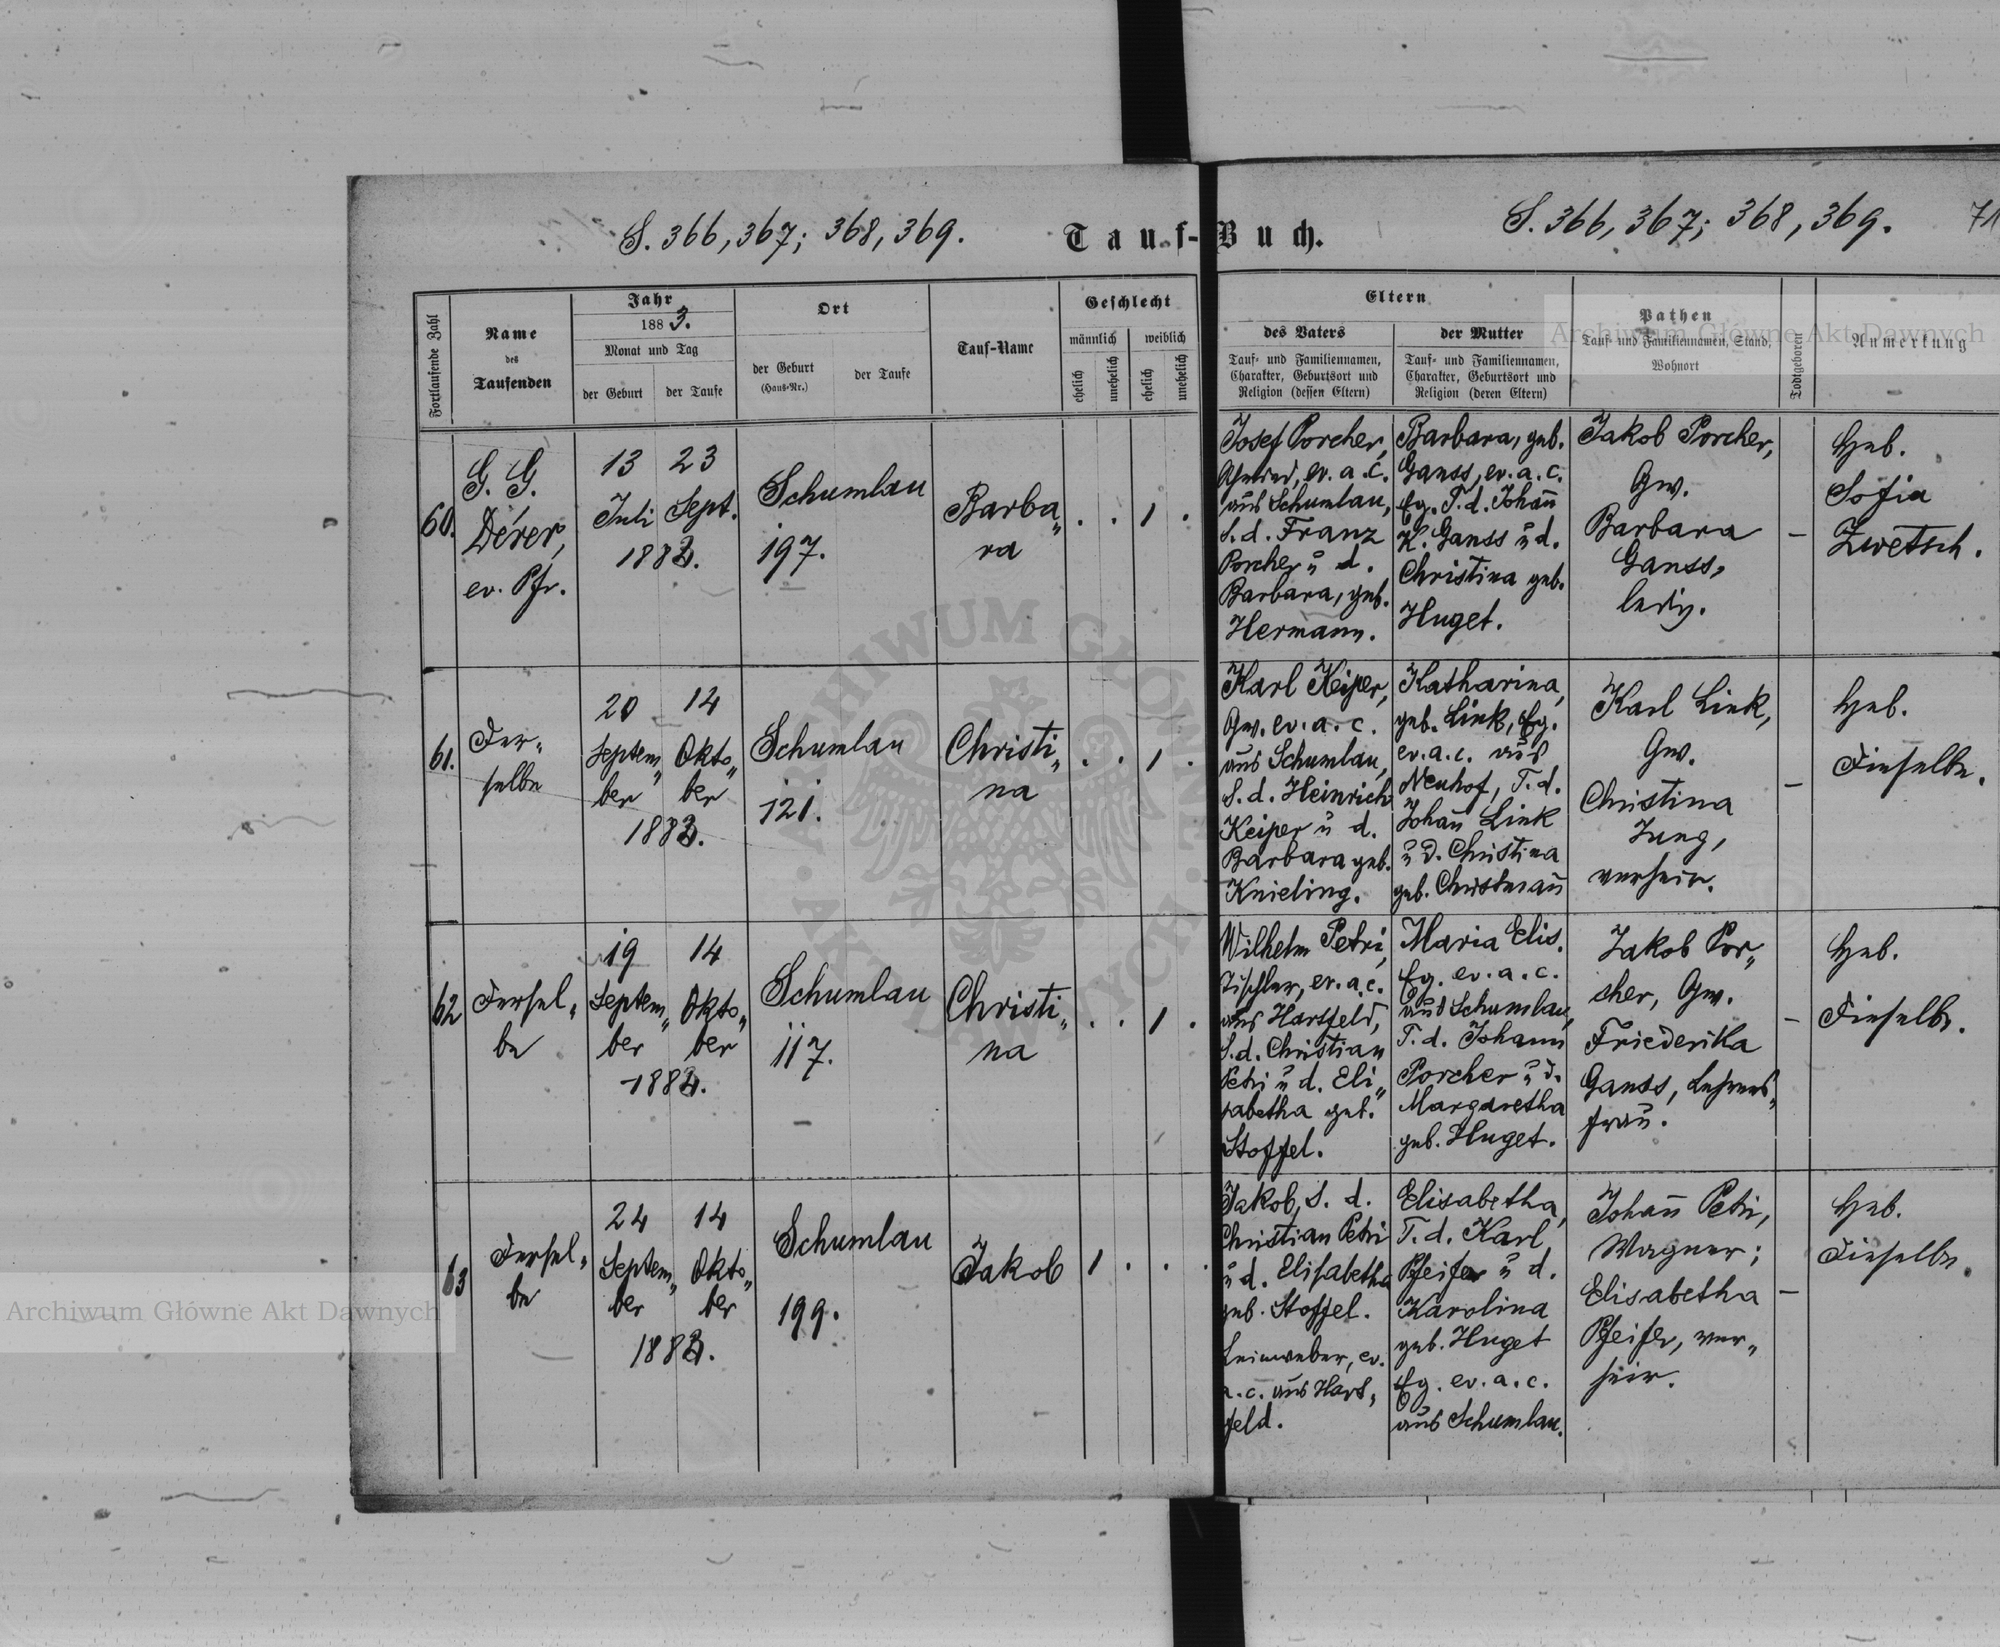 S. 366, 367; 368, 369.
Tauf-Buch.
S. 366, 367; 368, 369.
71
Fortlaufende Zahl
Name
des
Taufenden
Jahr
188 3.
Monat und Tag
der Geburt
der Taufe
Ort
der Geburt
(Haus-Nr.)
der Taufe
Tauf-Name
Geschlecht
männlich
weiblich
ehelich
unehelich
ehelich
unehelich
Eltern
des Vaters
Tauf- und Familiennamen,
Charakter, Geburtsort und
Religion (dessen Eltern)
der Mutter
Tauf- und Familiennamen,
Charakter, Geburtsort und
Religion (deren Eltern)
Pathen
Tauf- und Familiennamen, Stand,
Wohnort
Todtgeboren
Anmerkung
60.
G. G.
Dérer,
ev. Pfr.
13
Juli
23
Sept.
1883.
Schumlau
197.
Barba„
ra
. . 1 .
Josef Porcher,
ev. a. c.
aus Schumlau,
S. d. Franz
Porcher u d.
Barbara, geb.
Hermann.
Barbara, geb.
Ganss, ev. a. c.
Eg. T. d. Johañ
K. Ganss u d.
Christina geb.
Huget.
Jakob Porcher,
Gw.
Barbara
Ganss,
ledig.
–
Heb.
Sofia
Zwetsch.
61.
Der„
selbe
20
Septem„
ber
14
Okto„
ber
1883.
Schumlau
121.
Christi„
na
. . 1 .
Karl Keiper,
Gw. ev. a. c.
aus Schumlau,
S. d. Heinrich
Keiper u d.
Barbara geb.
Knieling.
Katharina,
geb. Link, Eg.
ev. a. c. aus
Neuhof, T. d.
Johañ Link
u d. Christina
geb. Christmañ
Karl Link,
Gw.
Christina
Jung,
verheir.
–
Heb.
Dieselbe.
62
Dersel„
be
19
Septem„
ber
14
Okto„
ber
1883.
Schumlau
117.
Christi„
na
. . 1 .
Wilhelm Petri,
Tischler, ev. a. c.
aus Hartfeld,
S. d. Christian
Petri u d. Eli„
sabetha geb.
Stoffel.
Maria Elis.
Eg. ev. a. c.
aus Schumlau,
T. d. Johann
Porcher u d.
Margaretha
geb. Huget.
Jakob Por„
cher, Gw.
Friederika
Ganss, Lehrers„
frau.
–
Heb.
Dieselbe.
63
Dersel„
be
24
Septem„
ber
14
Okto„
ber
1883.
Schumlau
199.
Jakob
1 . . .
Jakob, S. d.
Christian Petri
u d. Elisabetha
geb. Stoffel.
Leinweber, ev.
a. c. aus Hart„
feld.
Elisabetha,
T. d. Karl
Pfeifer u d.
Karolina
geb. Huget
Eg. ev. a. c.
aus Schumlau.
Johañ Petri,
Wagner;
Elisabetha
Pfeifer, ver„
heir.
–
Heb.
Dieselbe.
Archiwum Główne Akt Dawnych
Archiwum Główne Akt Dawnych
ARCHIWUM GŁÓWNE AKT DAWNYCH